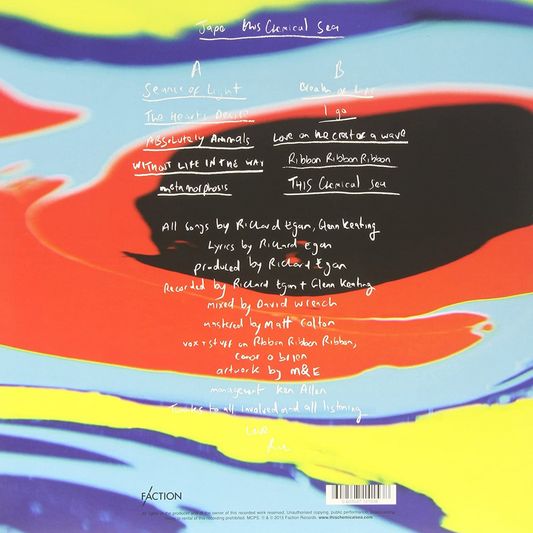 Jape this Chemical Sea
A
Seance of Light
The Hearts Desire
Absolutely Animals
WITHOUT LIFE IN THE WAY
metamorphosis
B
Breath of Life
I go
Love on the crest of a wave
Ribbon Ribbon Ribbon
THIS Chemical sea
All songs by Richard Egan, Glenn Keating
Lyrics by Richard Egan
produced by Richard Egan
Recorded by Richard Egan + Glenn Keating
mixed by David Wrench
mastered by Matt Colton
vox + stuff on Ribbon Ribbon Ribbon,
Conor O Brien
artwork by M&E
management Ken Allen
Thanks to all involved and all listening
Love
Richie
FACTION
All rights of the producer and of the owner of this recorded work reserved. Unauthorised copying, public performance, broadcasting,
hire or rental of this recording prohibited. MCPS. ℗ & © 2015 Faction Records www.thischemicalsea.com